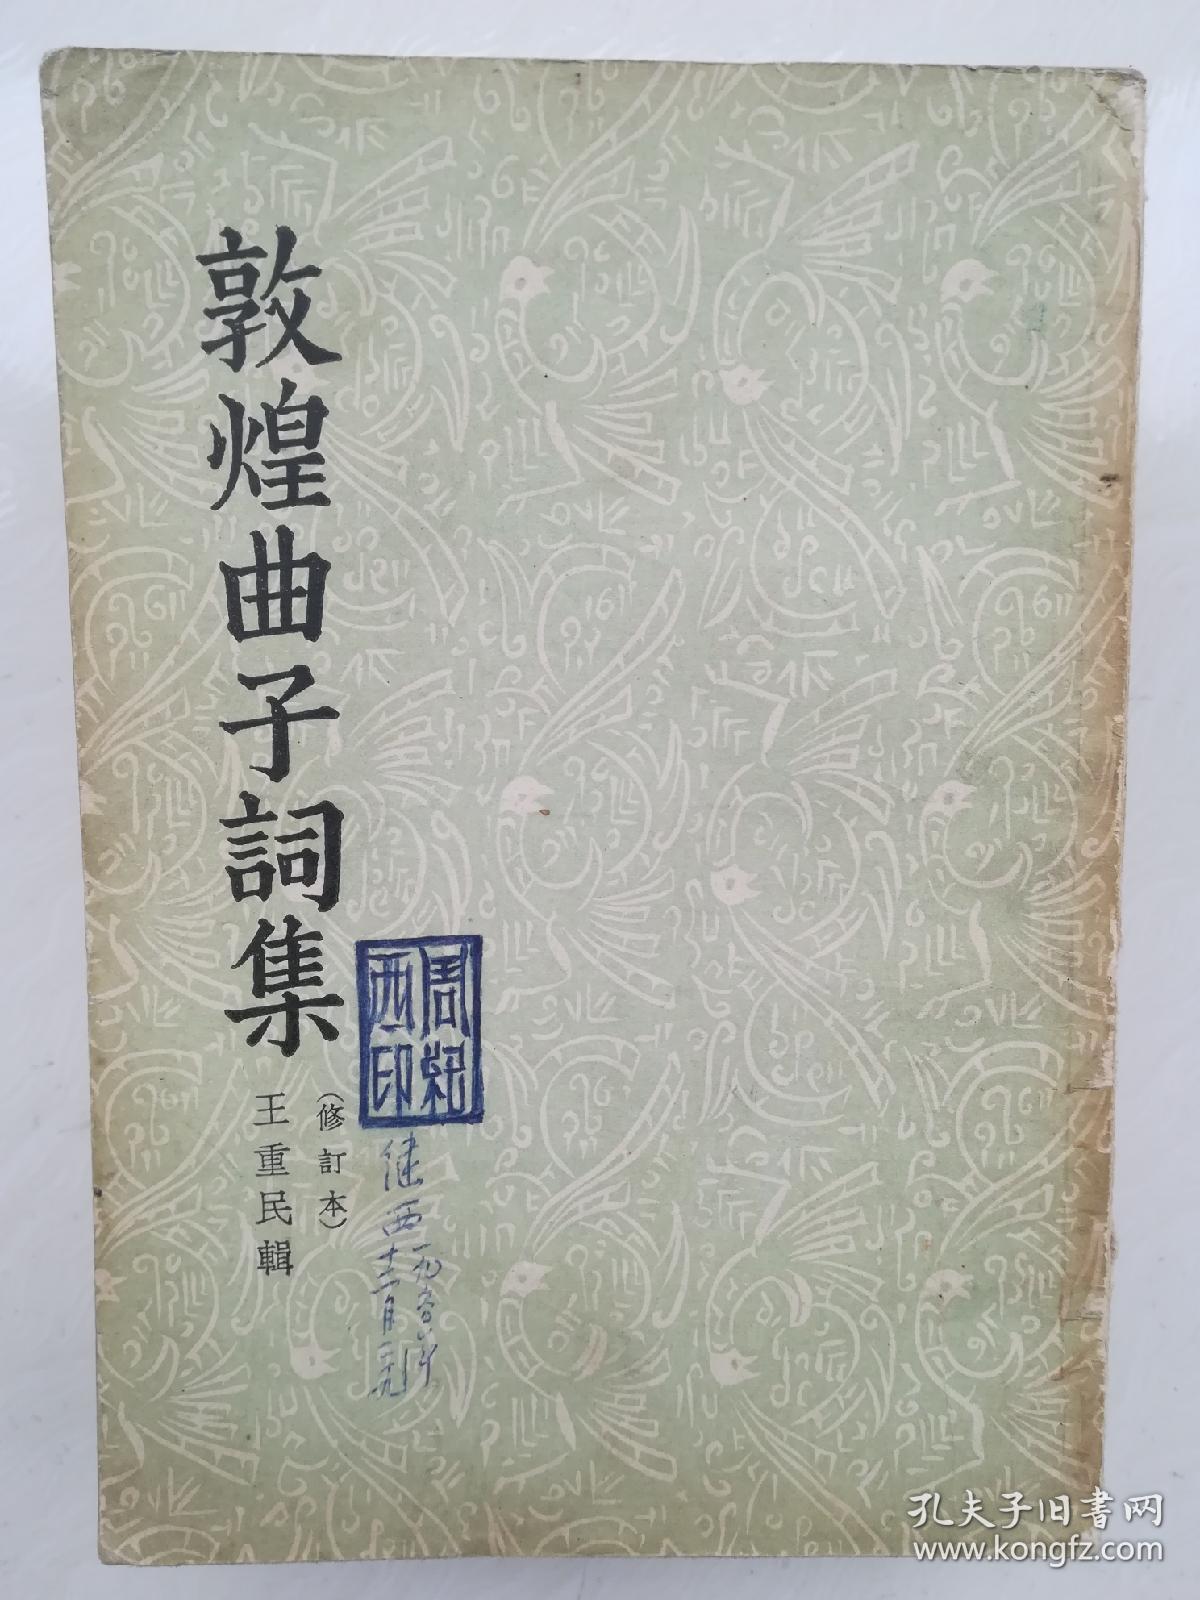 敦煌曲子詞集
（修訂本）
王重民輯
周紀
西印
西
十二月
孔夫子旧書网
www.kongfz.com